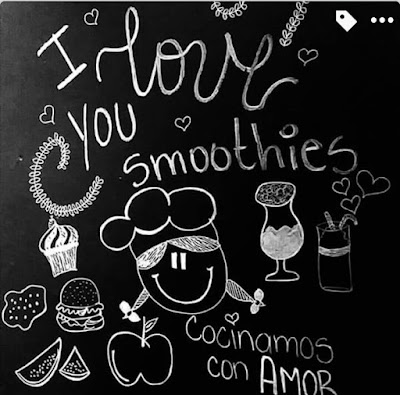 I love
you
smoothies
Cocinamos
con AMOR